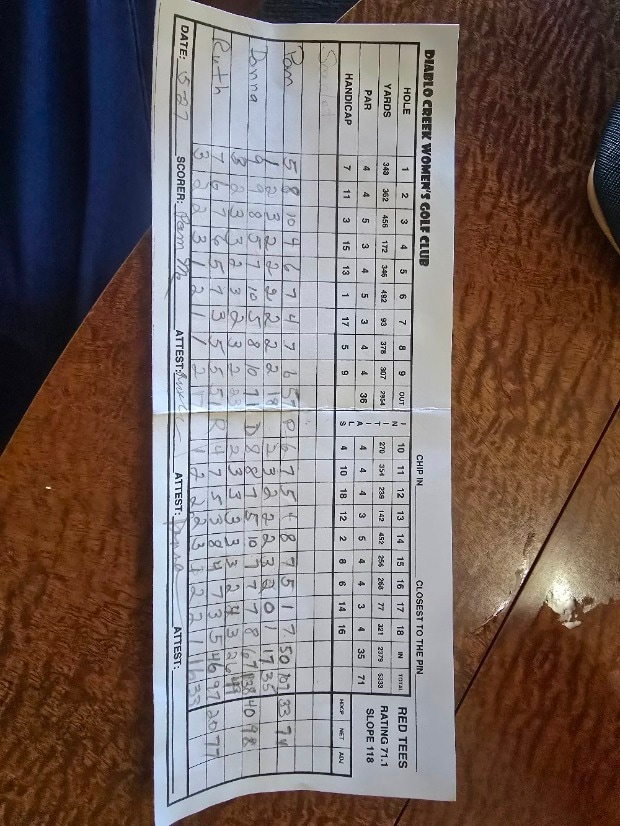 DIABLO CREEK WOMEN'S GOLF CLUB CHIP IN CLOSEST TO THE PIN
HOLE 1 2 3 4 5 6 7 8 9 OUT INITIALS 10 11 12 13 14 15 16 17 18 IN TOTAL RED TEES
YARDS 348 362 456 172 346 492 93 378 307 2954 270 354 239 142 452 256 268 77 321 2379 5333 RATING 71.1
PAR 4 4 5 3 4 5 3 4 4 36 4 4 4 3 5 4 4 3 4 35 71 SLOPE 118
HANDICAP 7 11 3 15 13 1 17 5 9 4 10 18 12 2 8 6 14 16 HDCP NET ADJ
Pam 5 8 10 4 6 7 4 7 6 57 P 6 7 5 4 8 7 5 1 7 50 107 33 74
1 2 3 2 2 2 2 2 2 18 2 3 2 2 2 3 2 0 1 17 35
Donna 9 9 8 5 7 10 5 8 10 71 D 8 8 7 5 10 7 7 7 8 67 138 40 98
3 2 3 3 2 3 2 3 2 2 3 3 3 3 2 4 3 2
Ruth 7 6 7 6 5 7 3 5 5 51 R 4 7 5 3 8 4 7 3 5 46 97 20 77
3 2 2 3 1 2 1 1 2 1 2 2 2 3 1 2 2 1 16 33
DATE: 5-27 SCORER: Pam ATTEST: ATTEST: Donna ATTEST: